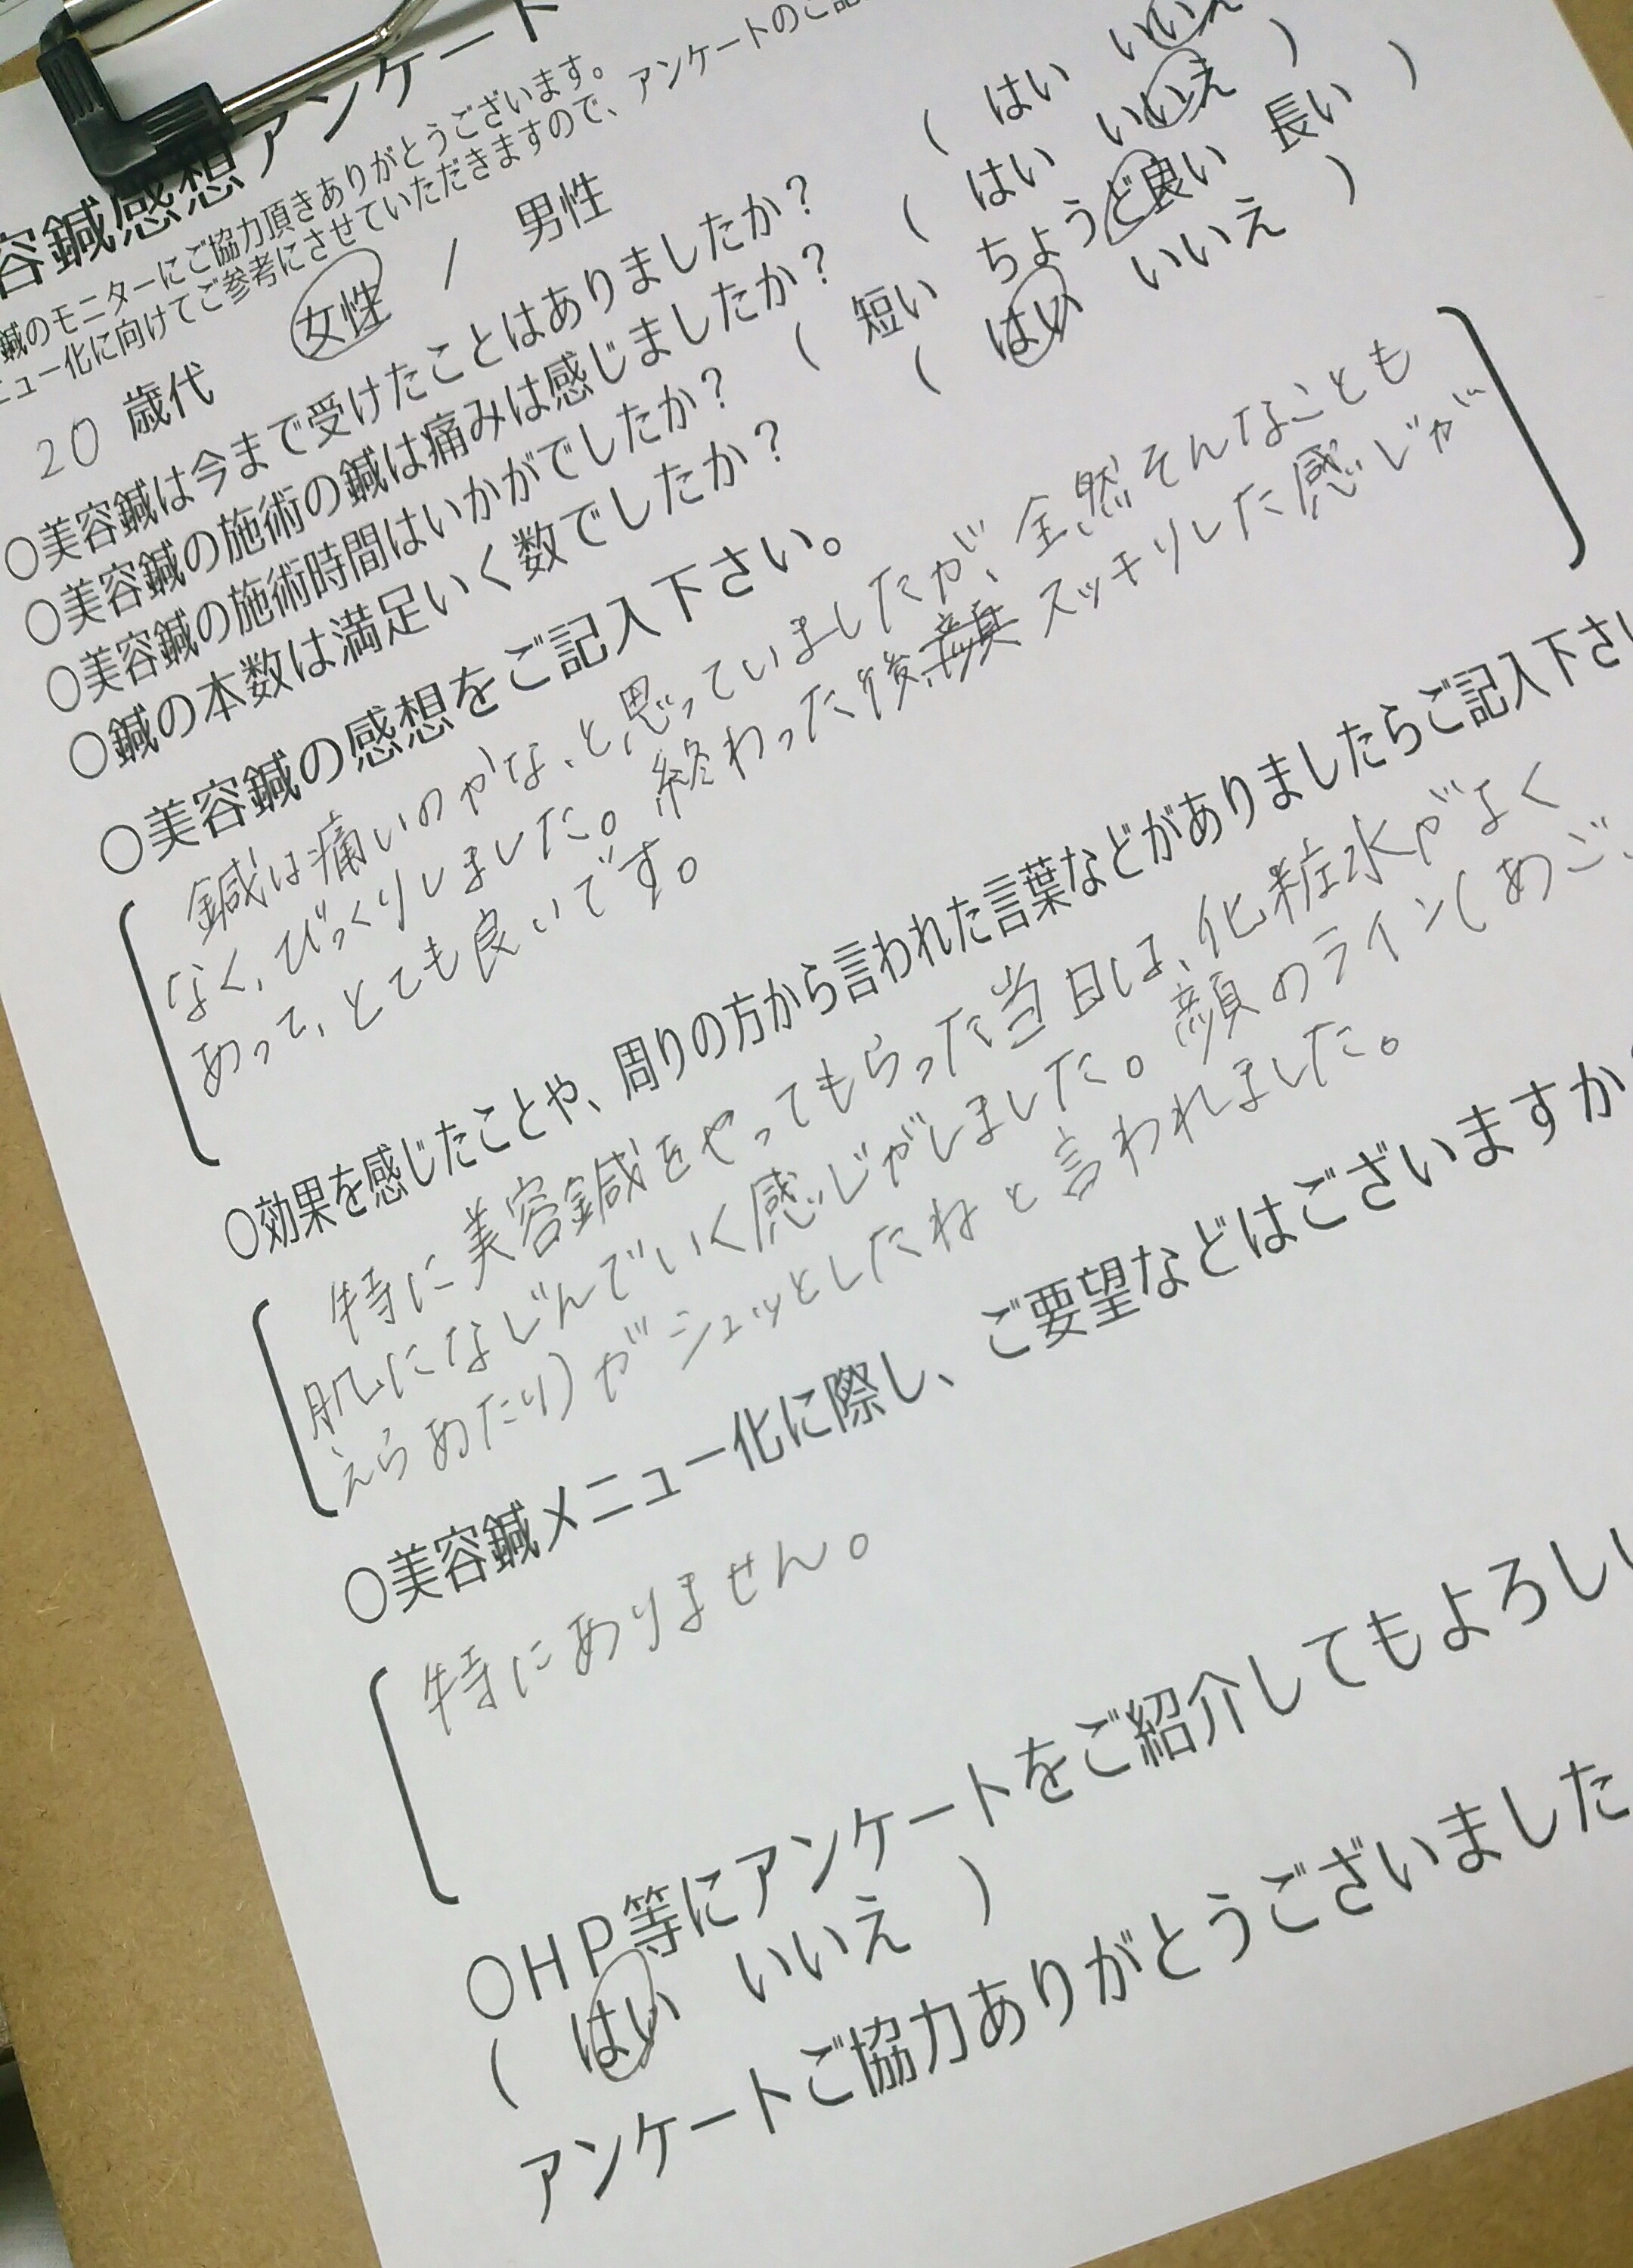 容鍼感想アンケート
鍼のモニターにご協力頂きありがとうございます。
ニュー化に向けてご参考にさせていただきますので、アンケートのご記
20 歳代 女性 / 男性
○美容鍼は今まで受けたことはありましたか? ( はい いいえ )
○美容鍼の施術の鍼は痛みは感じましたか? ( はい いいえ )
○美容鍼の施術時間はいかがでしたか? ( 短い ちょうど良い 長い )
○鍼の本数は満足いく数でしたか? ( はい いいえ )
○美容鍼の感想をご記入下さい。
鍼は痛いのかな、と思っていましたが、全然そんなことも
なく、びっくりしました。終わった後顔スッキリした感じが
あって、とても良いです。
○効果を感じたことや、周りの方から言われた言葉などがありましたらご記入下さい
特に美容鍼をやってもらった当日は、化粧水がよく
肌になじんでいく感じがしました。顔のライン(あご、
えらあたり)がシュッとしたねと言われました。
○美容鍼メニュー化に際し、ご要望などはございますか?
特にありません。
○HP等にアンケートをご紹介してもよろしい
( はい いいえ )
アンケートご協力ありがとうございました